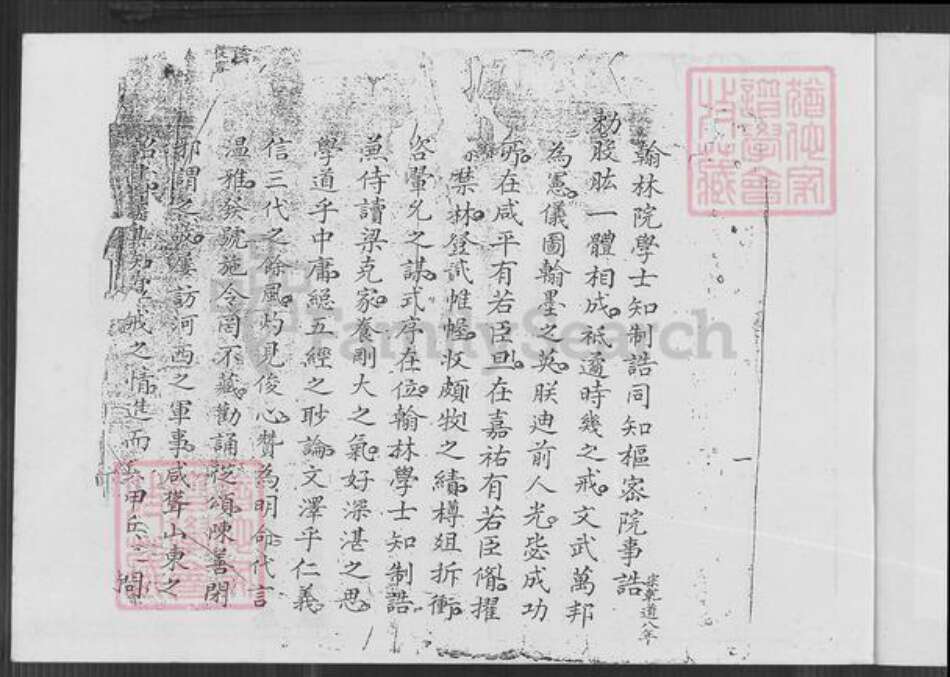 翰林院學士知制誥同知樞密院事誥 宋乾道八年
勅股肱一體相成。祇遹時幾之戒。文武萬邦
為憲。儀圖翰墨之英。朕迪前人光。毖成功
所。在咸平有若臣旦。在嘉祐有若臣脩。擢
禁林。登貳帷幄。收頗牧之績。樽俎折衝。
咨鼂允之謀。式序在位。翰林學士知制誥
兼侍讀梁克家。養剛大之氣。好深湛之思。
學道乎中庸。總五經之眇論。文澤乎仁義。
信三代之餘風。灼見俊心。贊為明命。代言
溫雅。發號施令罔不臧。勸誦
謂之 屢訪河西之軍事。咸聳山東之
之情。進而 甲兵之間
猶他家
譜學會
收藏
FamilySearch
一